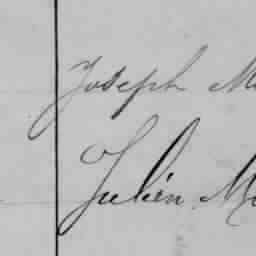 Joseph M
Julien M